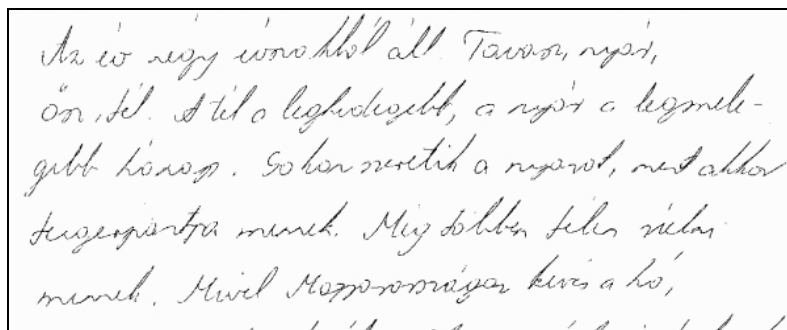 Az év négy évszakból áll. Tavasz, nyár,
ősz, tél. A tél a leghidegebb, a nyár a legmele-
gebb hónap. Sokan szeretik a nyarat, mert akkor
tengerpartra mennek. Míg többen télen síelni
mennek. Mivel Magyarországon kevés a hó,